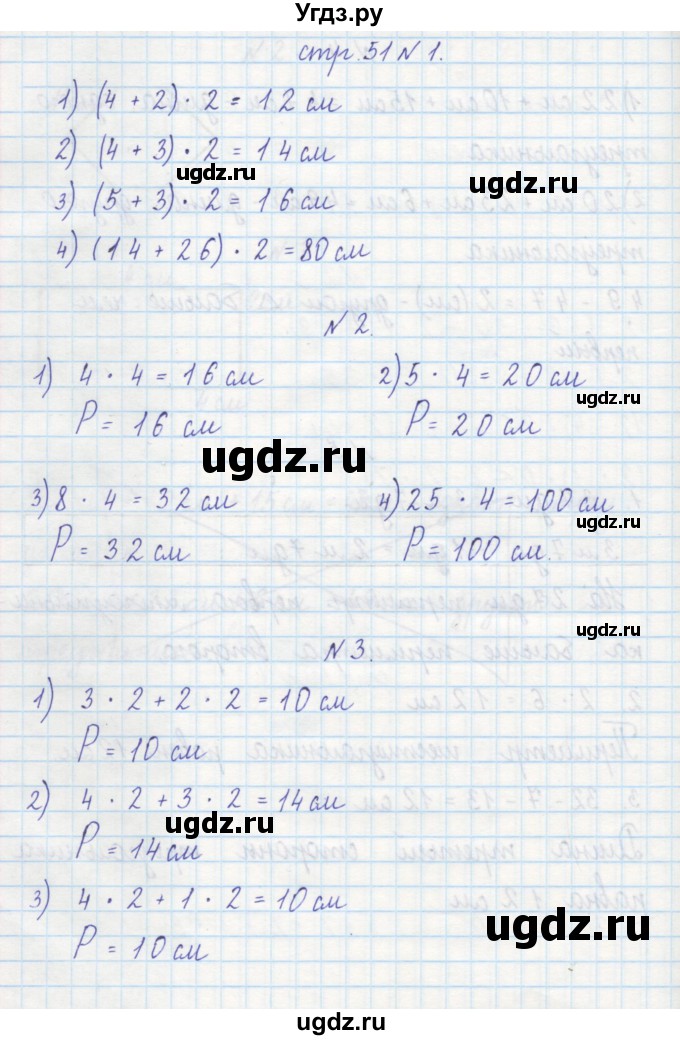 Угдз.ру
стр. 51 № 1.
1) (4 + 2) · 2 = 12 см
2) (4 + 3) · 2 = 14 см
ugdz.ru
ugdz.ru
3) (5 + 3) · 2 = 16 см
4) (14 + 26) · 2 = 80 см
№ 2.
1) 4 · 4 = 16 см 2) 5 · 4 = 20 см
ugdz.ru
P = 16 см P = 20 см
ugdz.ru
3) 8 · 4 = 32 см 4) 25 · 4 = 100 см
ugdz.ru
P = 32 см P = 100 см.
ugdz.ru
№ 3.
1) 3 · 2 + 2 · 2 = 10 см
ugdz.ru
P = 10 см
2) 4 · 2 + 3 · 2 = 14 см
ugdz.ru
P = 14 см
3) 4 · 2 + 1 · 2 = 10 см
ugdz.ru
P = 10 см
ugdz.ru